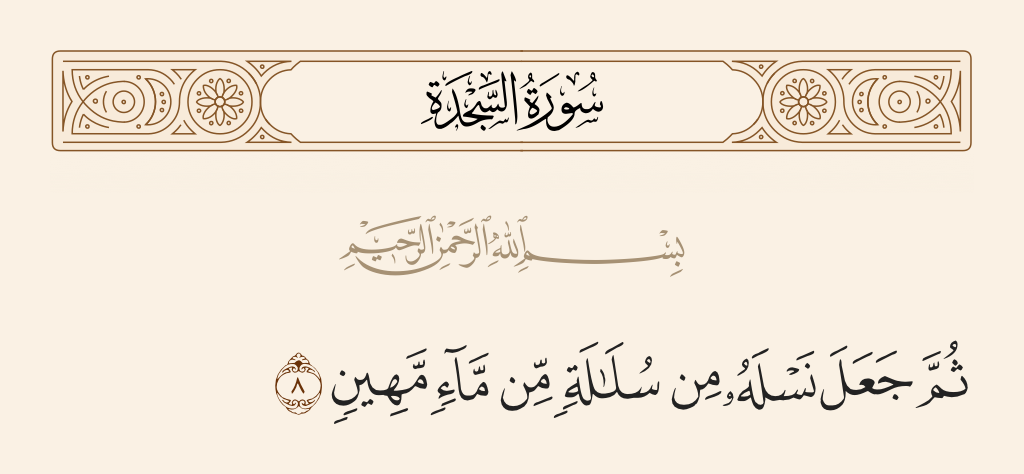 سُورَةُ السَّجْدَةِ
بِسْمِ ٱللَّهِ ٱلرَّحْمَٰنِ ٱلرَّحِيمِ
ثُمَّ جَعَلَ نَسْلَهُۥ مِن سُلَـٰلَةٍ مِّن مَّآءٍ مَّهِينٍ ٨